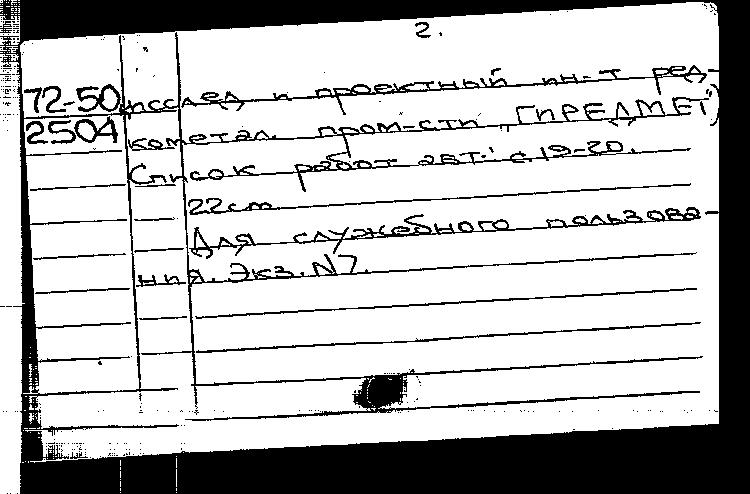 2.
72-50 исслед и проектный ин-т ред-
2504 кометал. пром-сти „ГИРЕДМЕТ")
Список работ авт.: с.19-20.
22см
Для служебного пользова-
ния. Экз. N7.